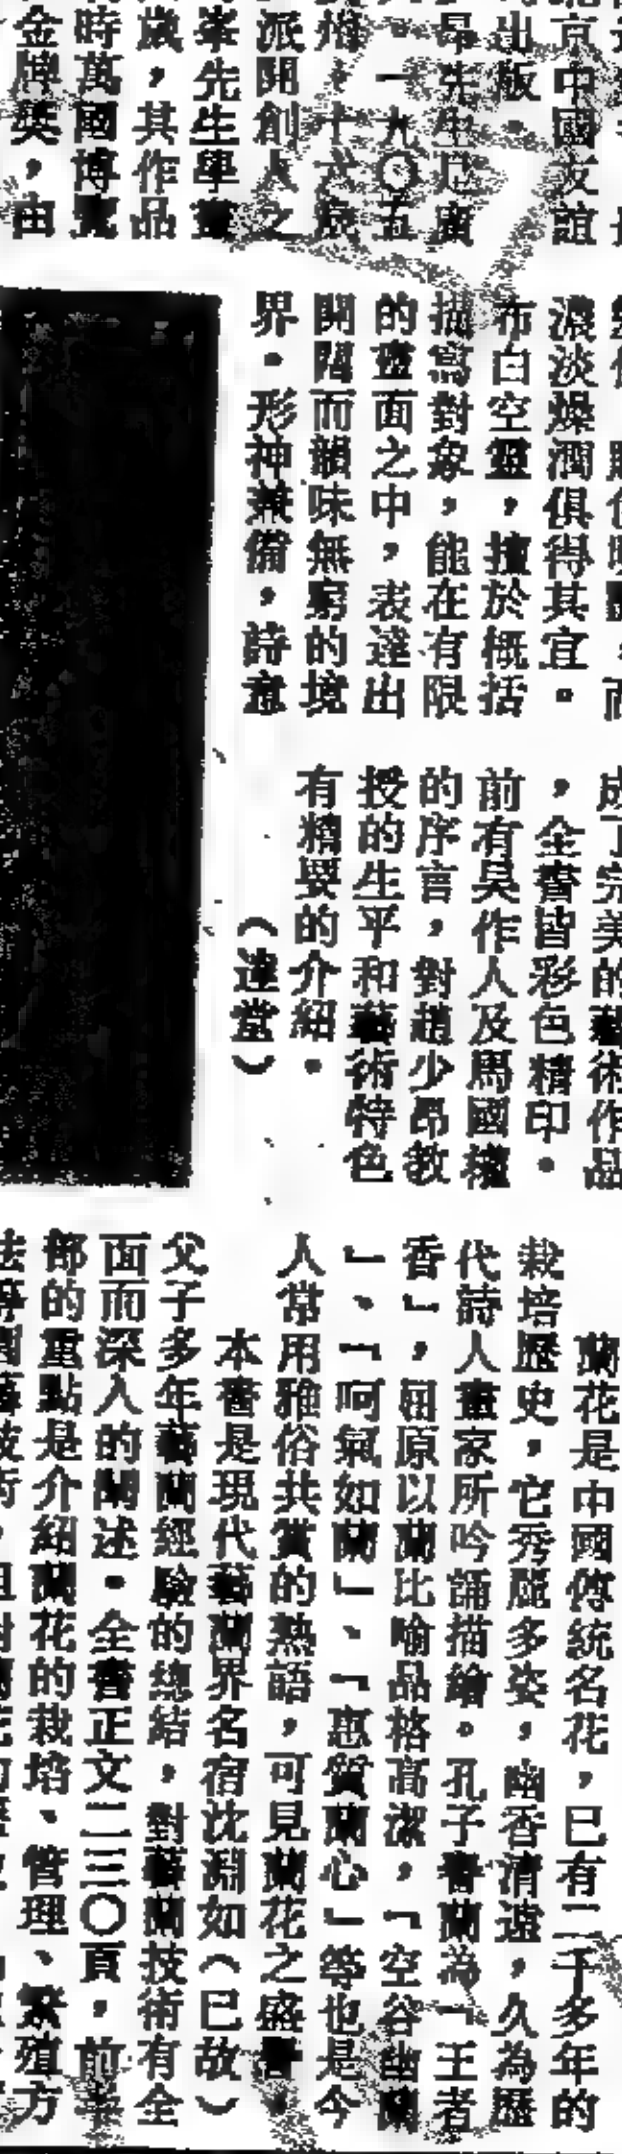 北京中國友誼
出版。
昂先生是廣
一九〇五
州。十六歲
派開創人之
峯先生學畫
歲，其作品
時萬國博覽
金牌獎，由
濃淡燥潤俱得其宜。
布白空靈，擅於概括
描寫對象，能在有限
的畫面之中，表達出
開闊而韻味無窮的境
界。形神兼備，詩意
成了完美的藝術作品
，全書皆彩色精印。
前有吳作人及馬國權
的序言，對趙少昂教
授的生平和藝術特色
有精要的介紹。
（達堂）
蘭花是中國傳統名花，已有二千多年的
栽培歷史，它秀麗多姿，幽香清遠，久為歷
代詩人畫家所吟誦描繪。孔子譽蘭為「王者
香」，屈原以蘭比喻品格高潔，「空谷幽蘭
」、「呵氣如蘭」、「蕙質蘭心」等也是今
人常用雅俗共賞的熟語，可見蘭花之盛譽。
本書是現代藝蘭界名宿沈淵如（已故）
父子多年藝蘭經驗的總結，對藝蘭技術有全
面而深入的闡述。全書正文二三〇頁，前半
部的重點是介紹蘭花的栽培、管理、繁殖方